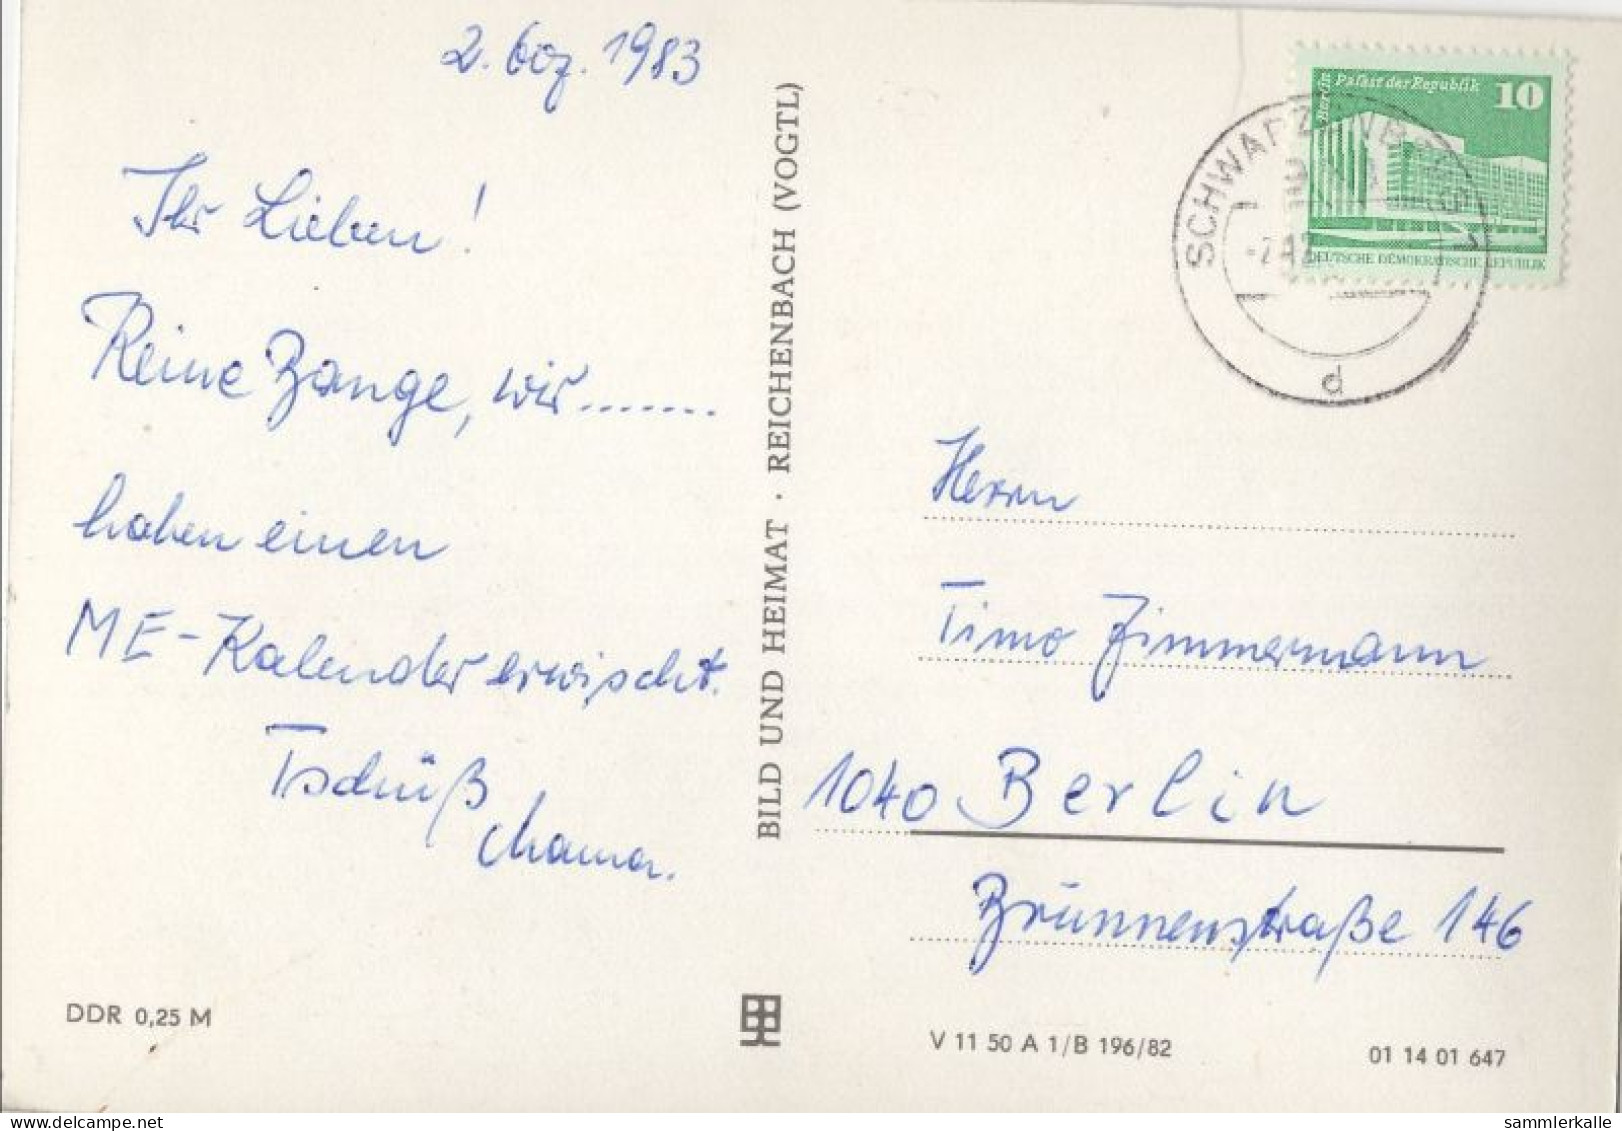 2. Dez. 1983
Ihr Lieben!
Keine Bange, wir.......
haben einen
ME-Kalender erwischt.
Tschüß
Mama.
DDR 0,25 M
BILD UND HEIMAT · REICHENBACH (VOGTL)
Berlin Palast der Republik
10
DEUTSCHE DEMOKRATISCHE REPUBLIK
d
Herrn
Timo Zimmermann
1040 Berlin
Brunnenstraße 146
V 11 50 A 1/B 196/82
01 14 01 647
sammlerkalle